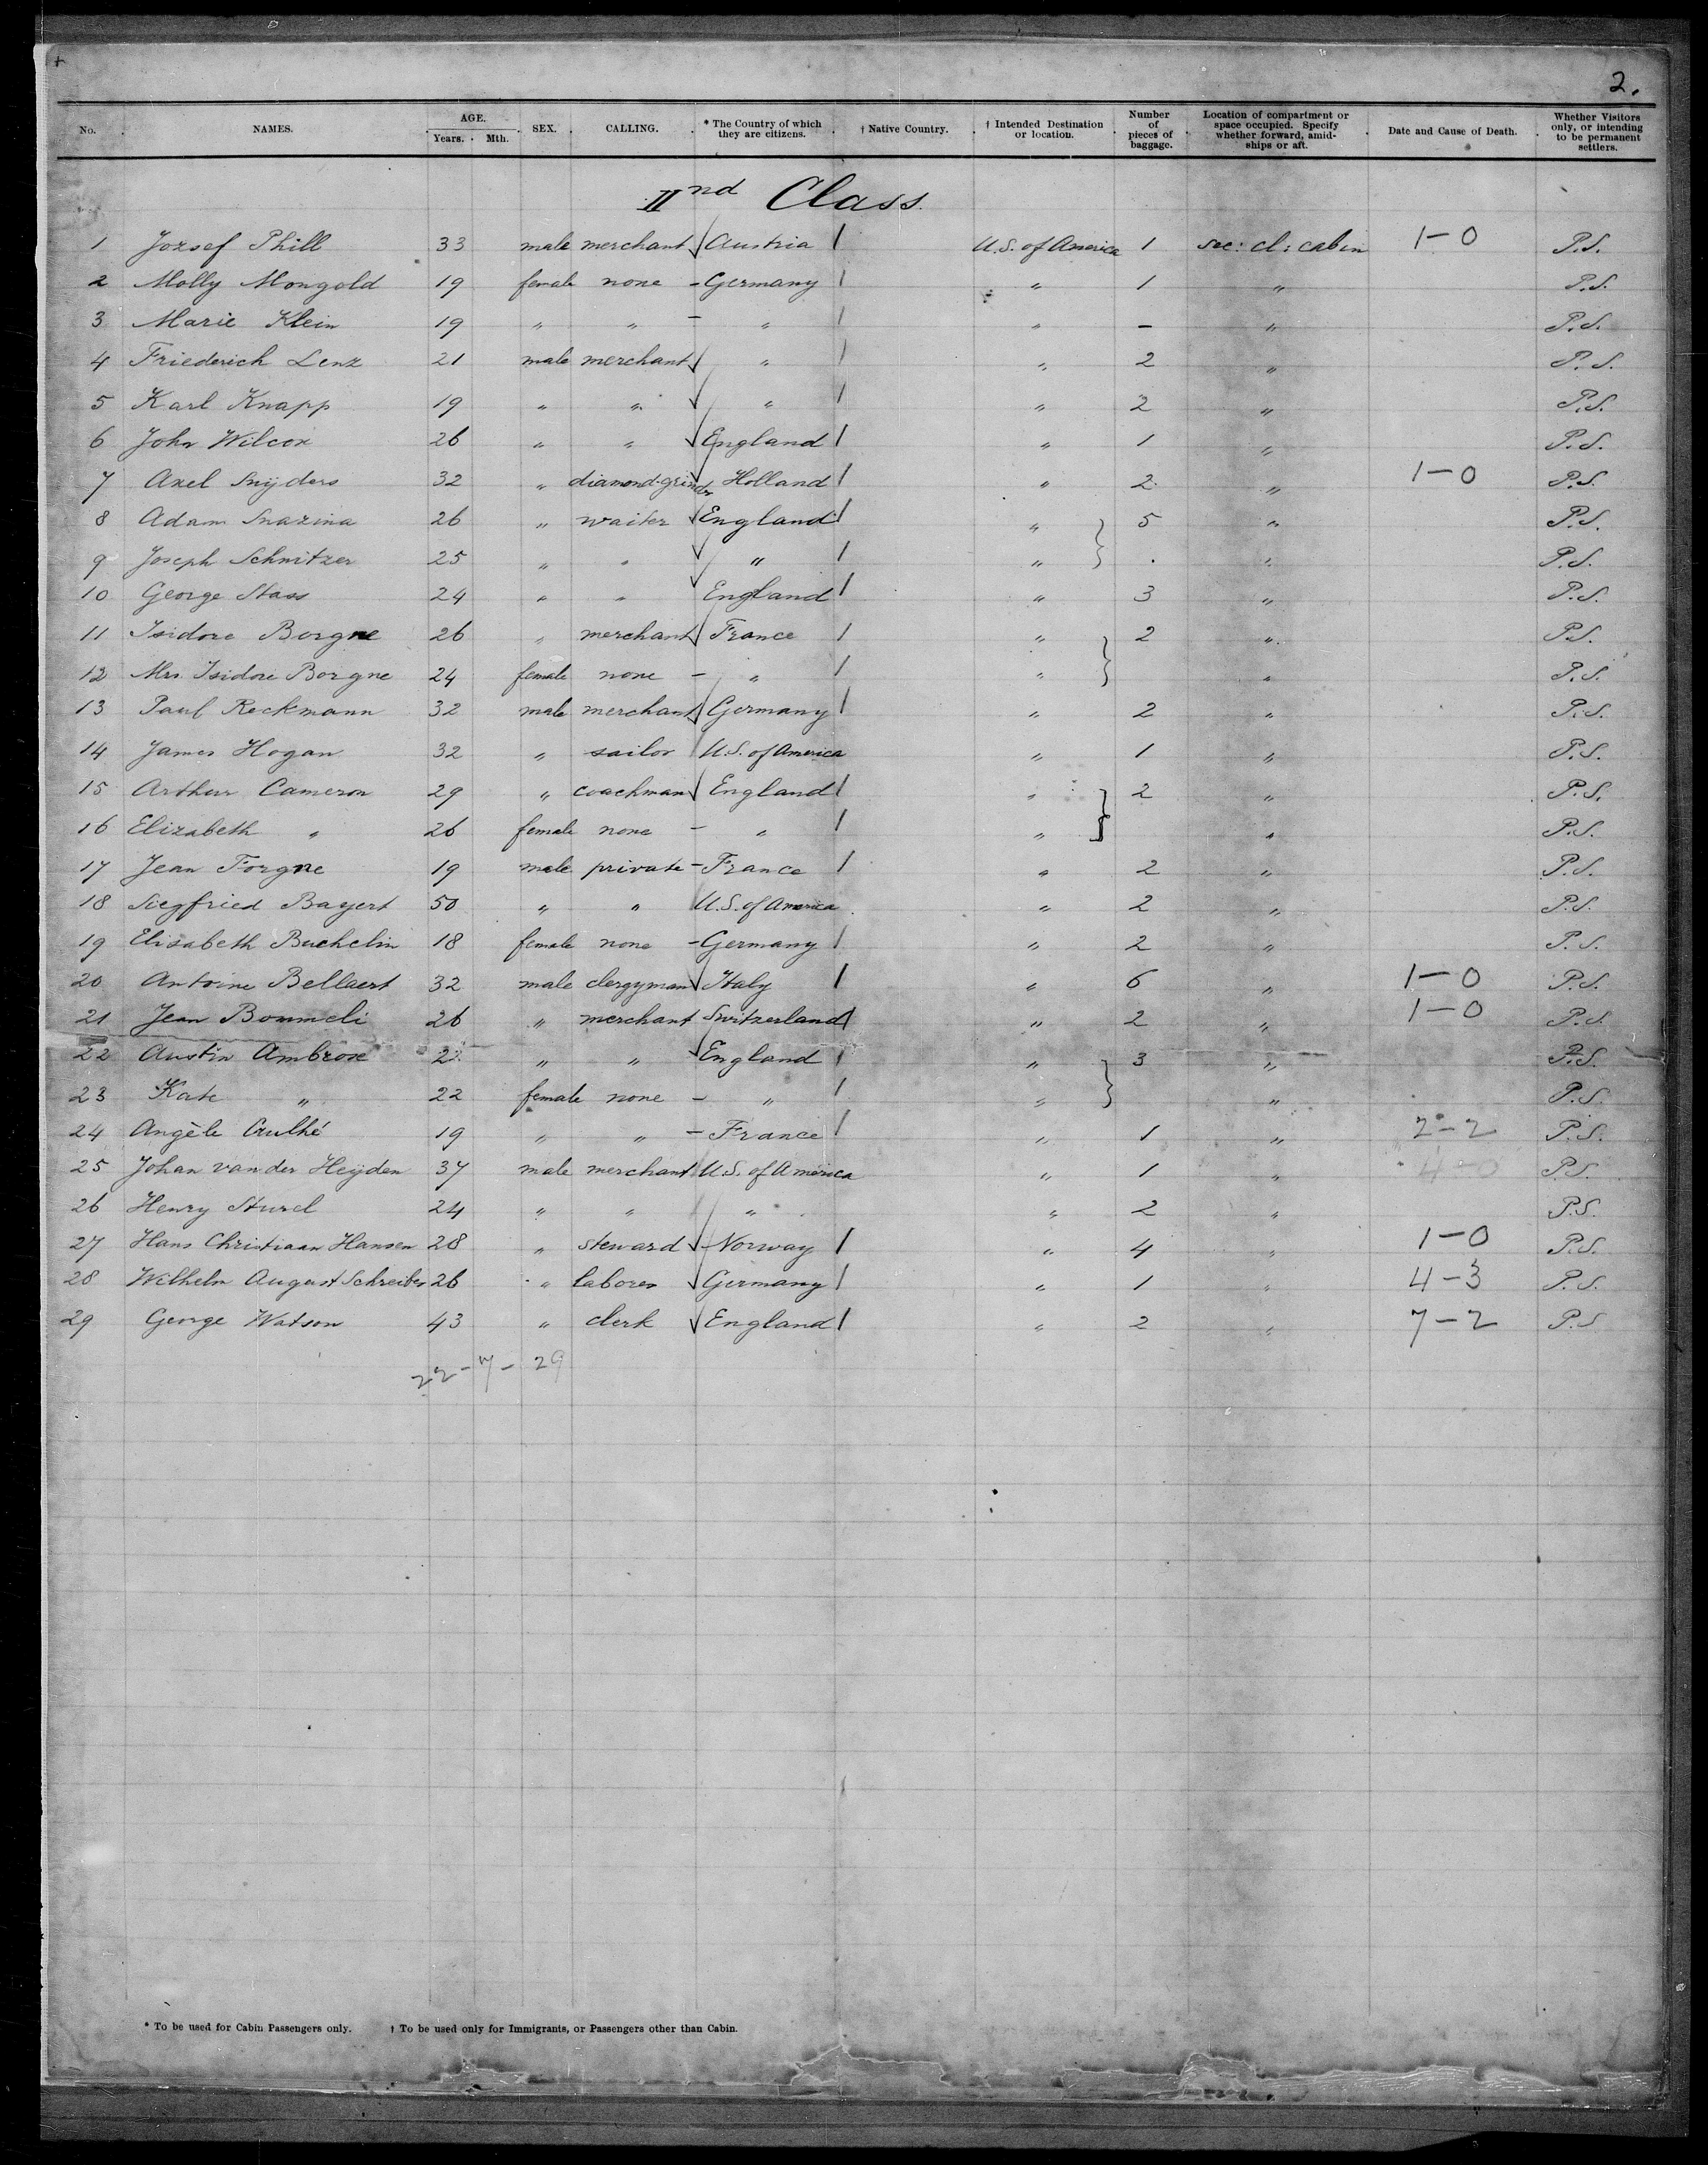 2.
No. NAMES. AGE. Years. Mth. SEX. CALLING. * The Country of which they are citizens. † Native Country. † Intended Destination or location. Number of pieces of baggage. Location of compartment or space occupied. Specify whether forward, amid-ships or aft. Date and Cause of Death. Whether Visitors only, or intending to be permanent settlers.
IInd Class.
1 Jozsef Phill 33 male merchant Austria U.S. of America 1 sec: cl: cabin 1-0 P.S.
2 Molly Mongold 19 female none - Germany " 1 " P.S.
3 Marie Klein 19 " " - " " - " P.S.
4 Friederich Lenz 21 male merchant " " 2 " P.S.
5 Karl Knapp 19 " " " " 2 " P.S.
6 John Wilcox 26 " " England " 1 " P.S.
7 Axel Snijders 32 " diamond-grinder Holland " 2 " 1-0 P.S.
8 Adam Snazina 26 " waiter England " 5 " P.S.
9 Joseph Schnitzer 25 " " " " . " P.S.
10 George Stass 24 " " England " 3 " P.S.
11 Isidore Borgne 26 " merchant France " 2 " P.S.
12 Mrs. Isidore Borgne 24 female none - " " " P.S.
13 Paul Reckmann 32 male merchant Germany " 2 " P.S.
14 James Hogan 32 " sailor U.S. of America " 1 " P.S.
15 Arthur Cameron 29 " coachman England " 2 " P.S.
16 Elizabeth " 26 female none - " " " P.S.
17 Jean Forgne 19 male private - France " 2 " P.S.
18 Siegfried Bayert 50 " " U.S. of America " 2 " P.S.
19 Elisabeth Buchelin 18 female none - Germany " 2 " P.S.
20 Antoine Bellaert 32 male clergyman Italy " 6 " 1-0 P.S.
21 Jean Bommeli 26 " merchant Switzerland " 2 " 1-0 P.S.
22 Austin Ambrose " " England " 3 " P.S.
23 Kate " 22 female none - " " " P.S.
24 Angèle 19 " " - France " 1 " 2-2 P.S.
25 Johan van der Heyden 37 male merchant U.S. of America " 1 " 4-0 P.S.
26 Henry Sturel 24 " " " " 2 " P.S.
27 Hans Christiaan Hansen 28 " steward Norway " 4 " 1-0 P.S.
28 Wilhelm August Schreiber 26 " laborer Germany " 1 " 4-3 P.S.
29 George Watson 43 " clerk England " 2 " 7-2 P.S
22-7-29
* To be used for Cabin Passengers only. † To be used only for Immigrants, or Passengers other than Cabin.